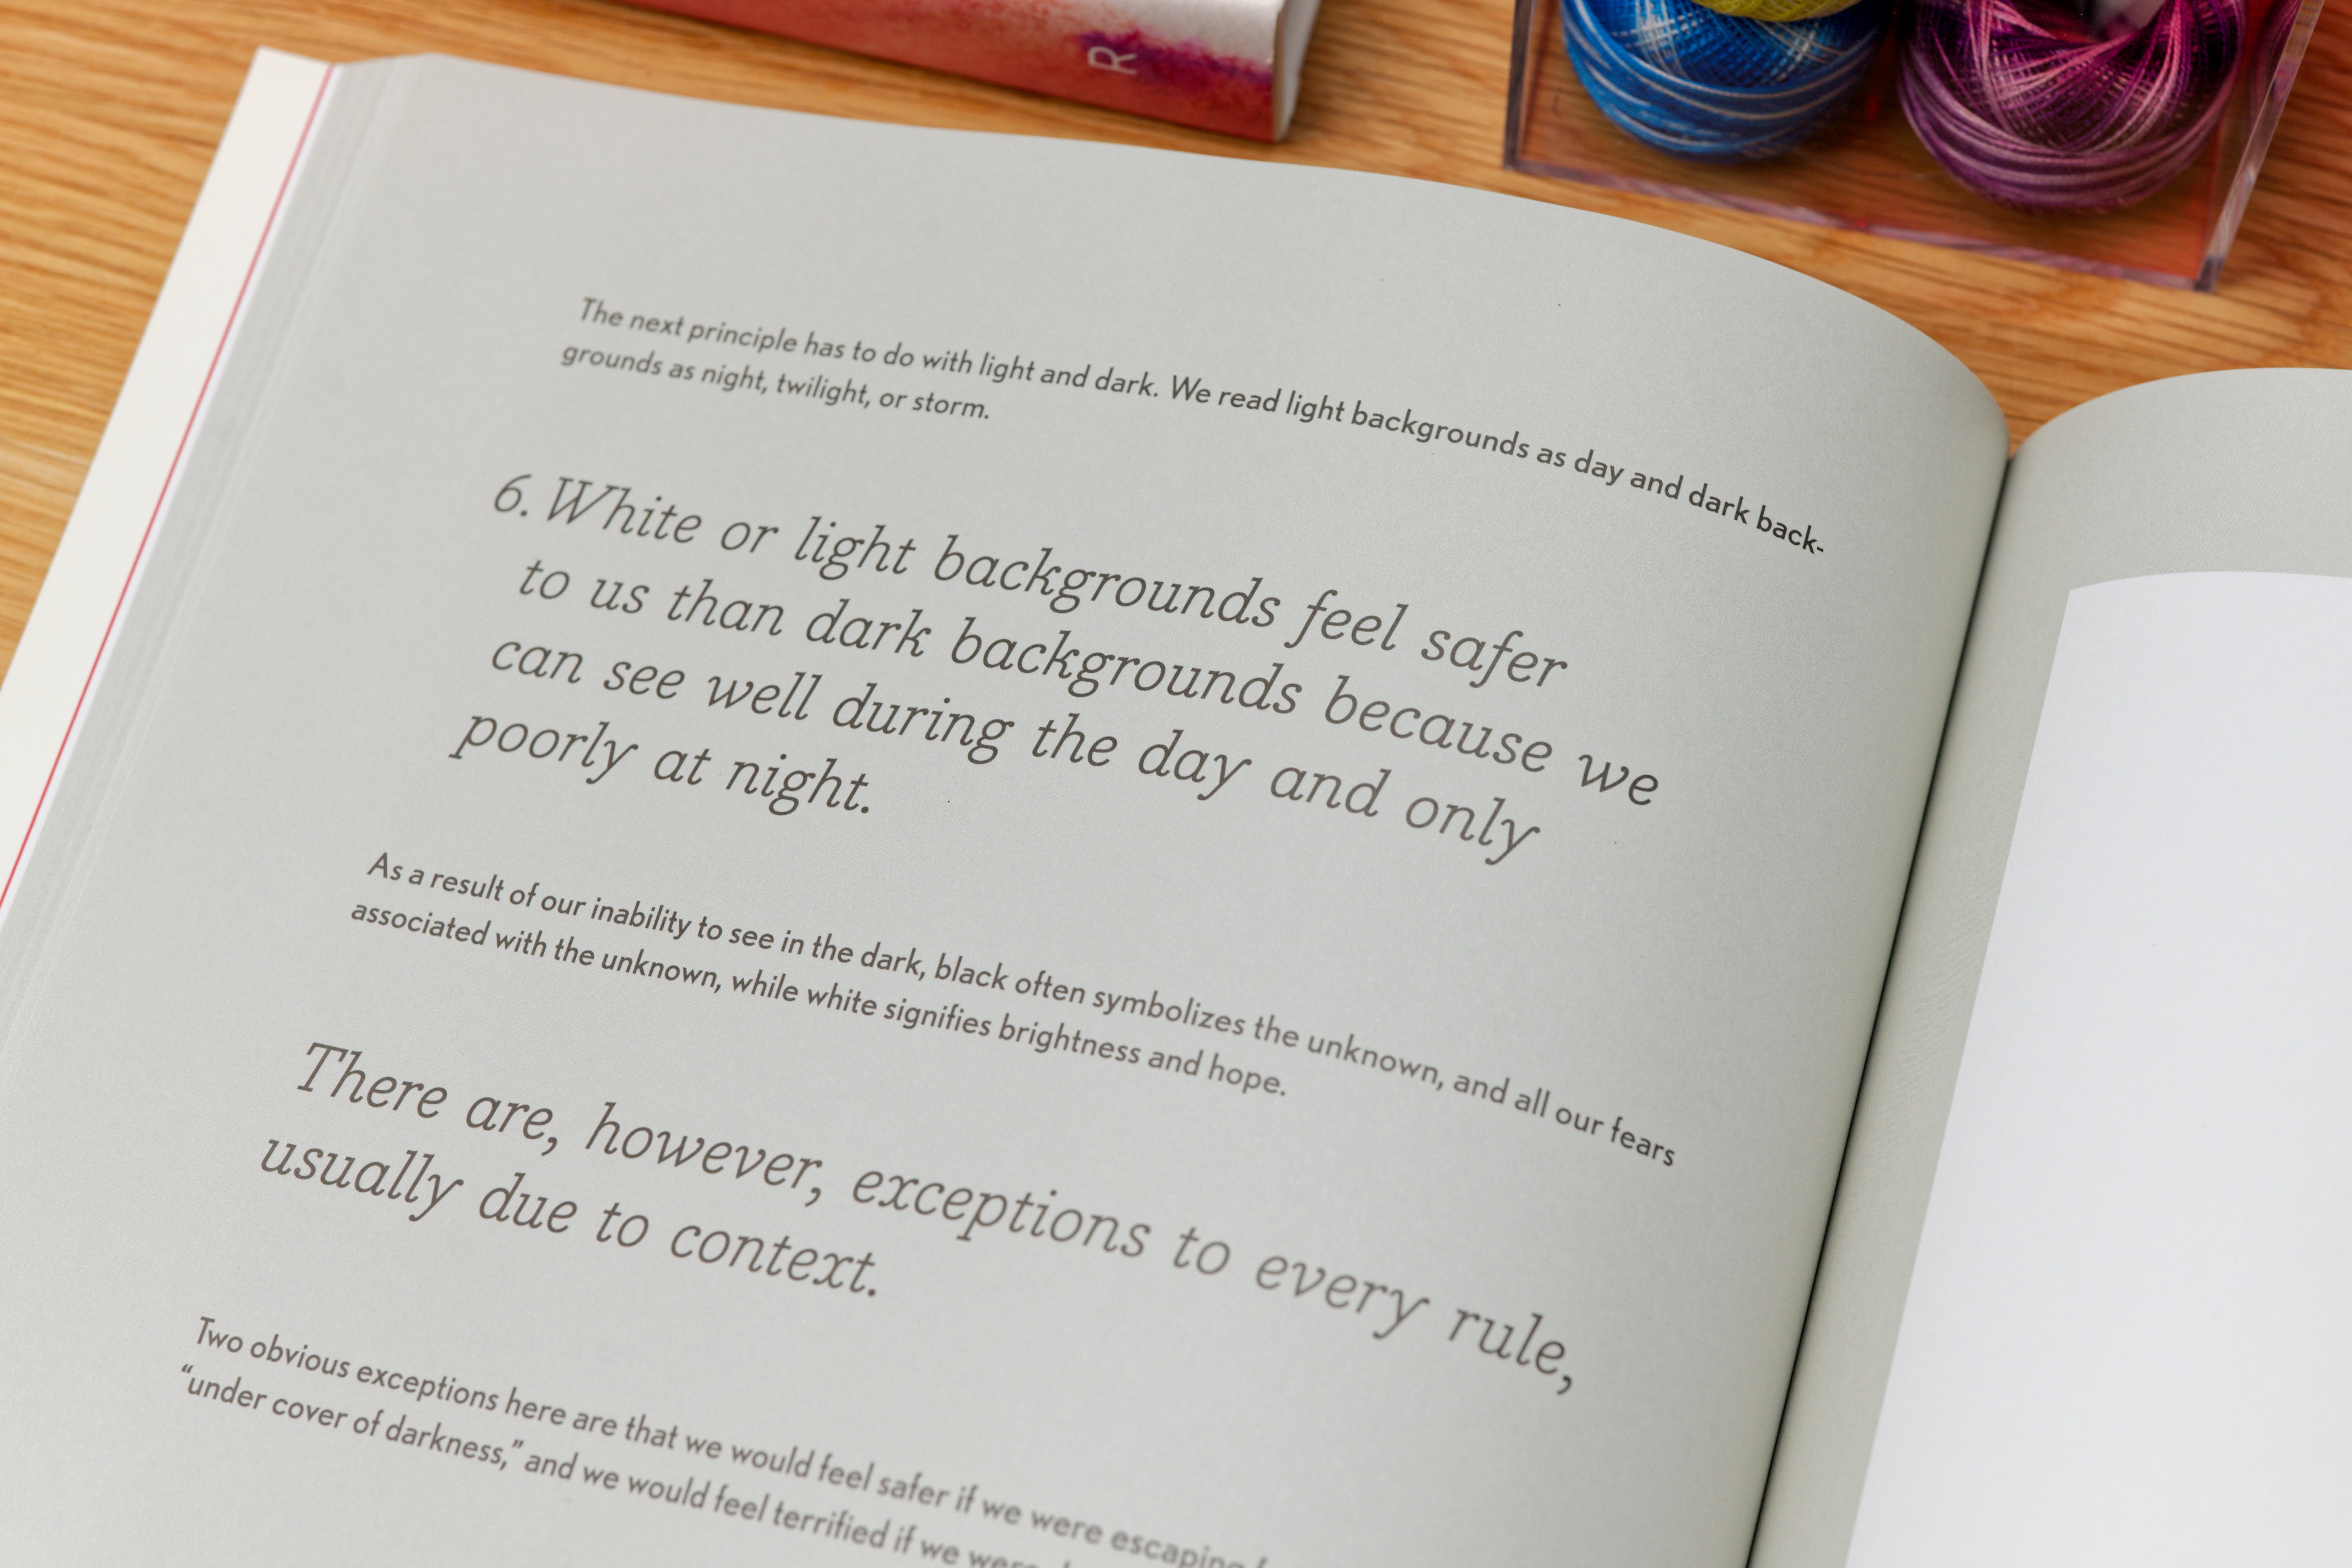 R
The next principle has to do with light and dark. We read light backgrounds as day and dark back-
grounds as night, twilight, or storm.
6. White or light backgrounds feel safer
to us than dark backgrounds because we
can see well during the day and only
poorly at night.
As a result of our inability to see in the dark, black often symbolizes the unknown, and all our fears
associated with the unknown, while white signifies brightness and hope.
There are, however, exceptions to every rule,
usually due to context.
Two obvious exceptions here are that we would feel safer if we were escaping
“under cover of darkness,” and we would feel terrified if we were